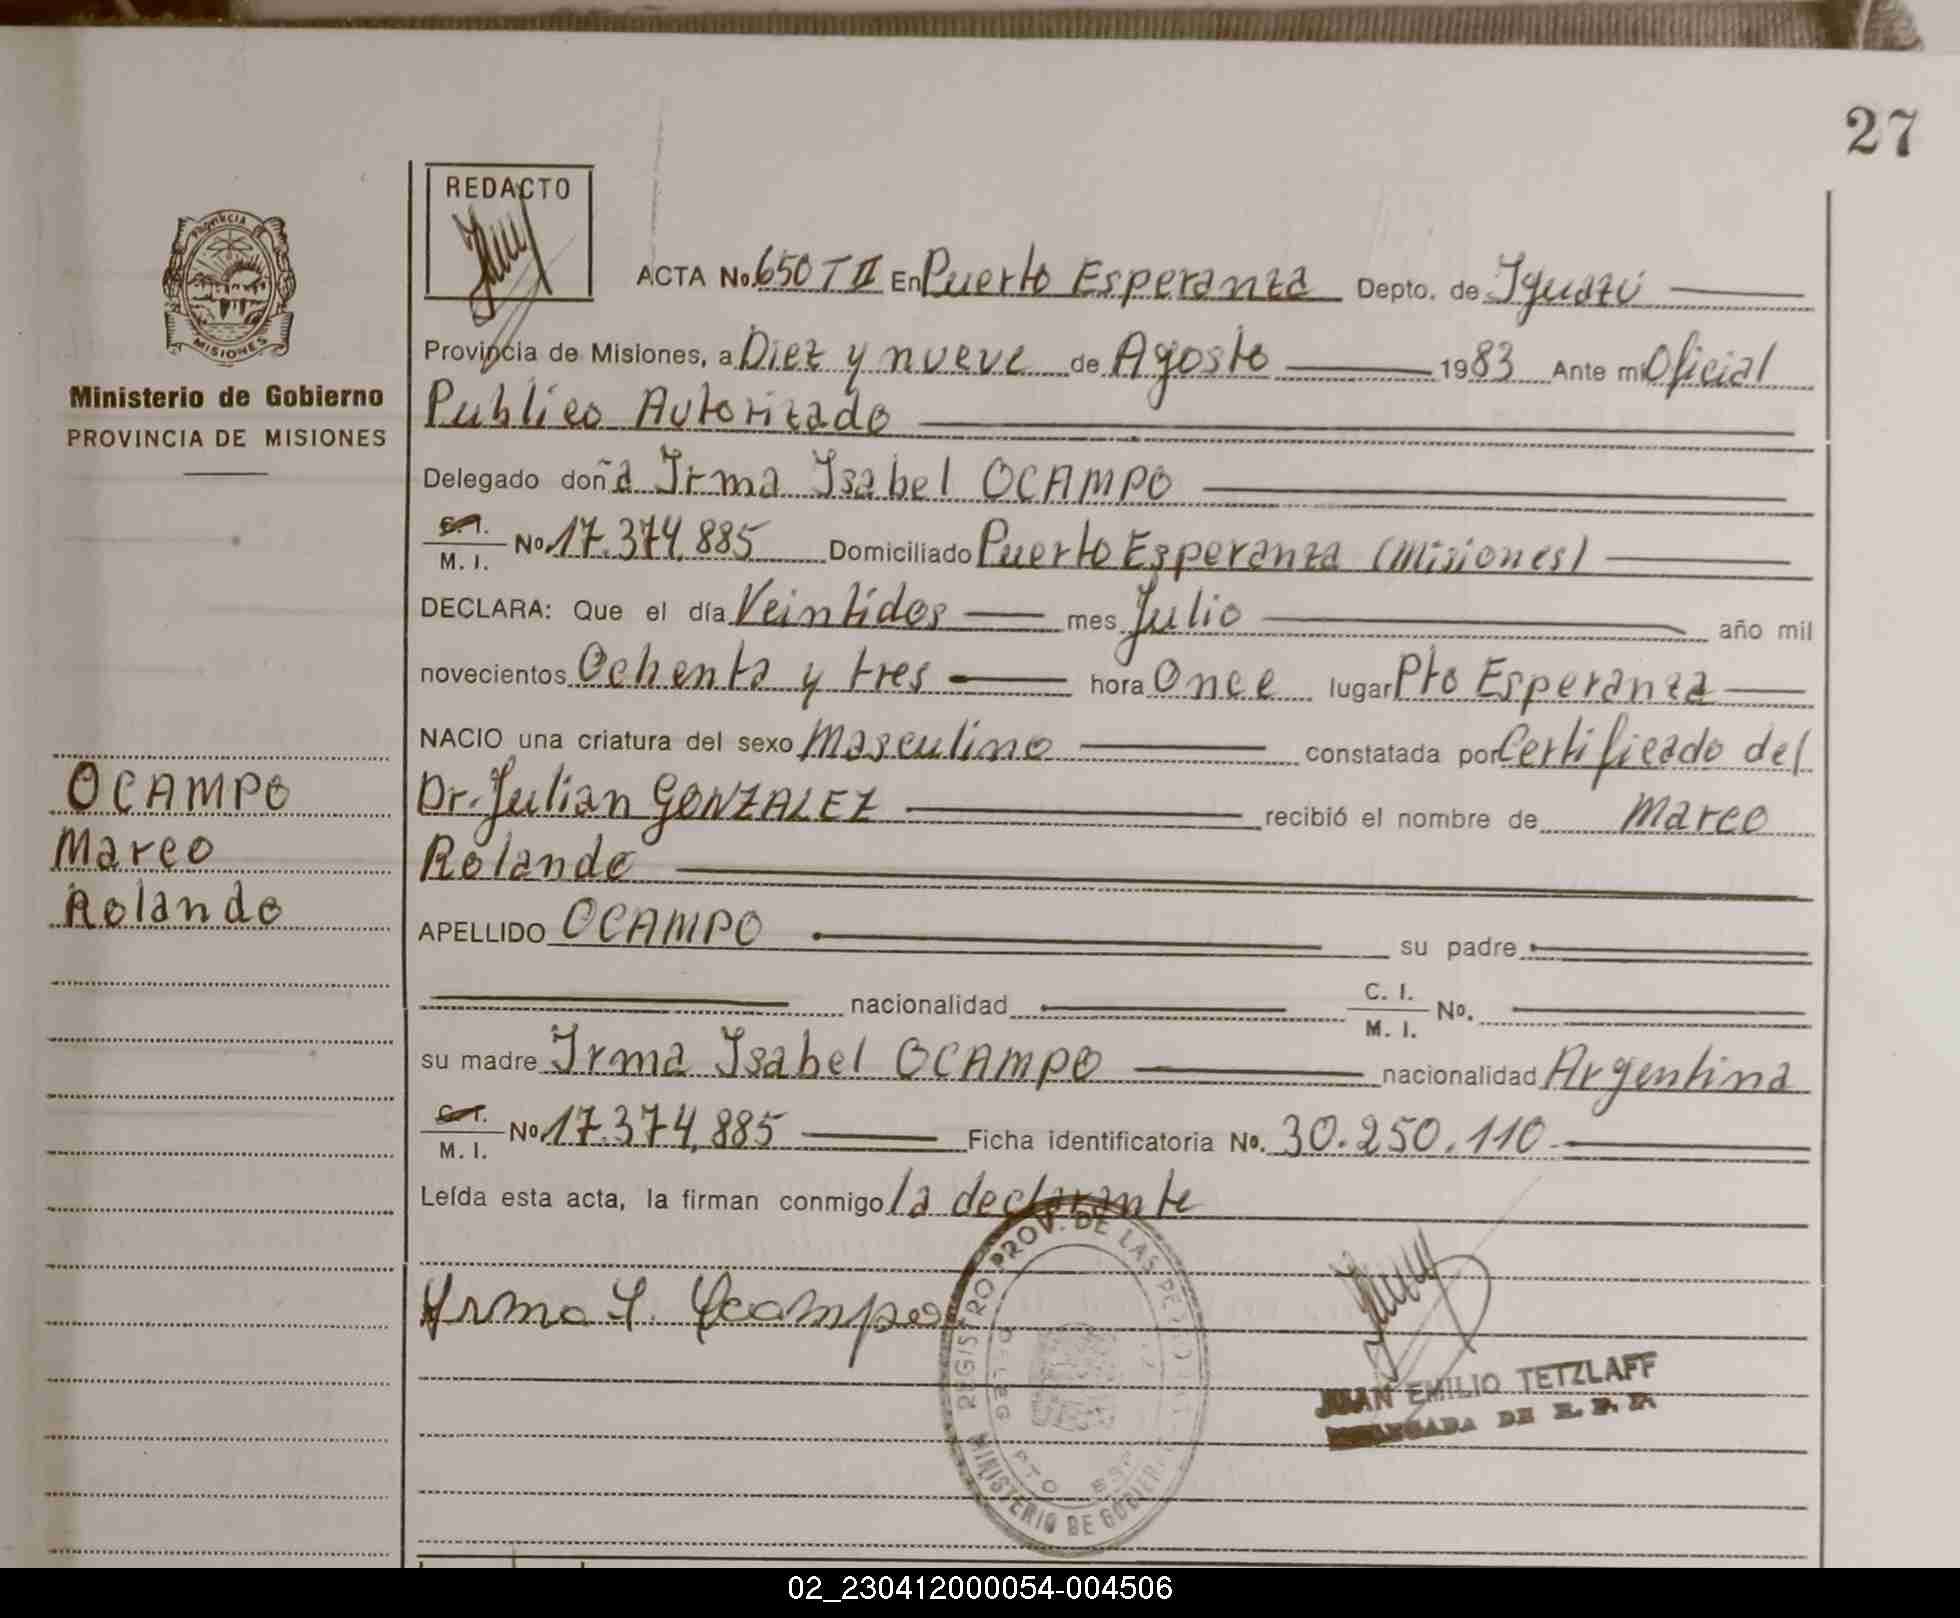 27
PROVINCIA
MISIONES
Ministerio de Gobierno
PROVINCIA DE MISIONES
REDACTO
ACTA No. 650 T II En Puerto Esperanza Depto. de Iguazú
Provincia de Misiones, a Diez y nueve de Agosto 1983 Ante mi Oficial
Publico Autorizado
Delegado doña Irma Isabel OCAMPO
C.I. / M. I. No. 17.374.885 Domiciliado Puerto Esperanza (Misiones)
DECLARA: Que el día Veintidos mes Julio año mil
novecientos Ochenta y tres hora Once lugar Pto Esperanza
NACIO una criatura del sexo Masculino constatada por Certificado del
Dr. Julian GONZALEZ recibió el nombre de Marco
Rolando
OCAMPO
Marco
Rolando
APELLIDO OCAMPO su padre
nacionalidad C. I. / M. I. No.
su madre Irma Isabel OCAMPO nacionalidad Argentina
C.I. / M. I. No 17.374.885 Ficha identificatoria No. 30.250.110
Leída esta acta, la firman conmigo la declarante
Irma I. Ocampo
REGISTRO PROV. DE LAS PERSONAS
MINISTERIO DE GOBIERNO
PTO ESP
JUAN EMILIO TETZLAFF
DELEGADA DE R. P. P.
02_230412000054-004506